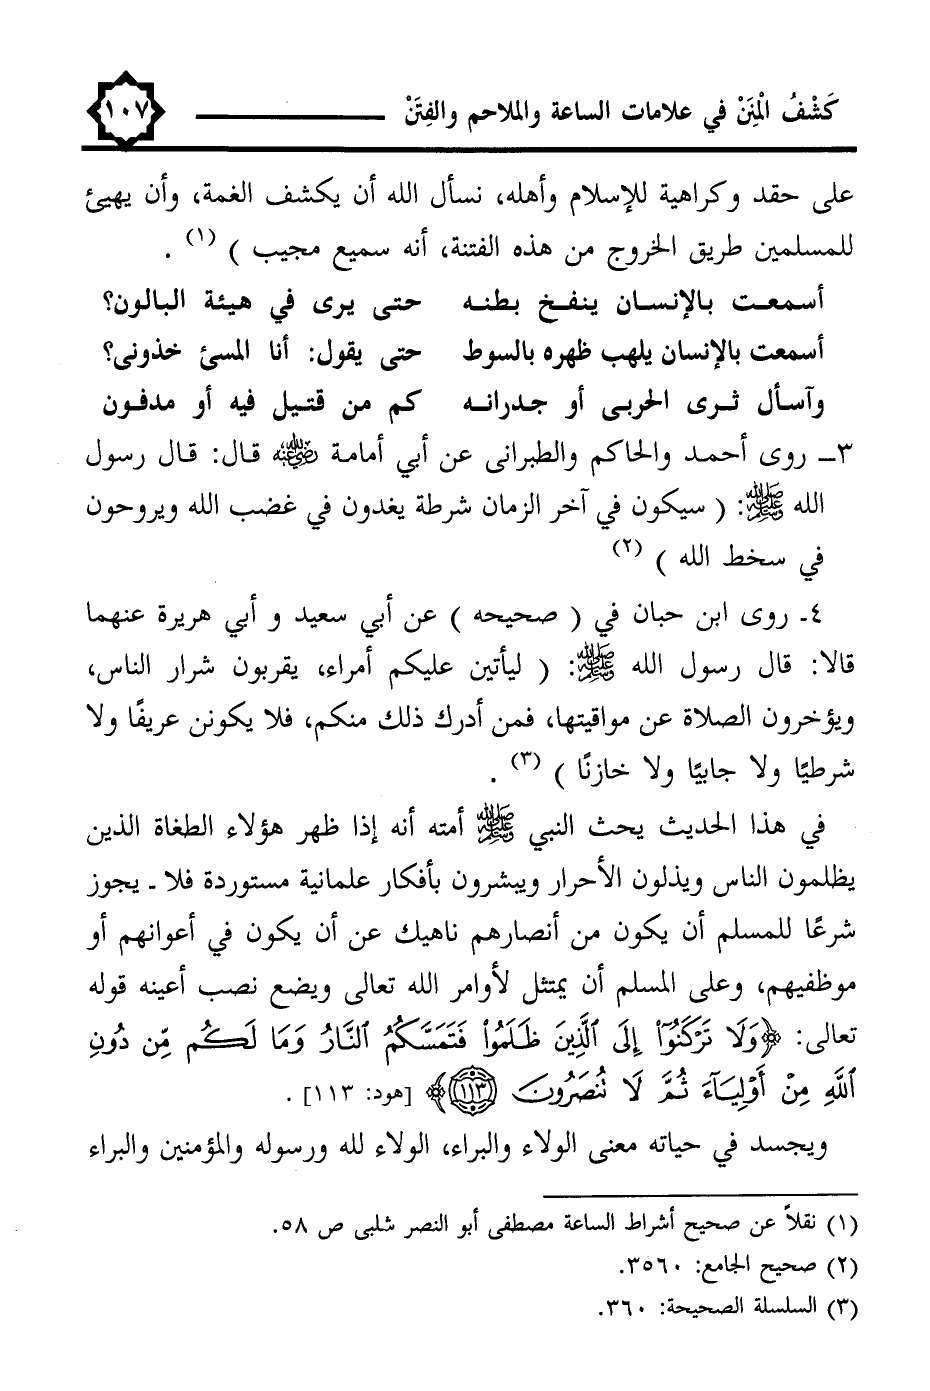 كَشْفُ الْمِنَنْ في علامات الساعة والملاحم والفِتَنْ ١٠٧
على حقد وكراهية للإسلام وأهله، نسأل الله أن يكشف الغمة، وأن يهيئ
للمسلمين طريق الخروج من هذه الفتنة، أنه سميع مجيب ) (١) .
أسمعت بالإنسان ينفخ بطنه حتى يرى في هيئة البالون؟
أسمعت بالإنسان يلهب ظهره بالسوط حتى يقول: أنا المسئ خذونى؟
وآسأل ثرى الحربى أو جدرانه كم من قتيل فيه أو مدفون
٣ـ روى أحمد والحاكم والطبرانى عن أبي أمامة رضي الله عنه قال: قال رسول
الله ﷺ: ( سيكون في آخر الزمان شرطة يغدون في غضب الله ويروحون
في سخط الله ) (٢)
٤ـ روى ابن حبان في ( صحيحه ) عن أبي سعيد و أبي هريرة عنهما
قالا: قال رسول الله ﷺ: ( ليأتين عليكم أمراء، يقربون شرار الناس،
ويؤخرون الصلاة عن مواقيتها، فمن أدرك ذلك منكم، فلا يكونن عريفًا ولا
شرطيًا ولا جابيًا ولا خازنًا ) (٣) .
في هذا الحديث يحث النبي ﷺ أمته أنه إذا ظهر هؤلاء الطغاة الذين
يظلمون الناس ويذلون الأحرار ويبشرون بأفكار علمانية مستوردة فلا ـ يجوز
شرعًا للمسلم أن يكون من أنصارهم ناهيك عن أن يكون في أعوانهم أو
موظفيهم، وعلى المسلم أن يمتثل لأوامر الله تعالى ويضع نصب أعينه قوله
تعالى: ﴿وَلَا تَرْكَنُوٓا۟ إِلَى ٱلَّذِينَ ظَلَمُوا۟ فَتَمَسَّكُمُ ٱلنَّارُ وَمَا لَكُم مِّن دُونِ
ٱللَّهِ مِنْ أَوْلِيَآءَ ثُمَّ لَا تُنصَرُونَ ١١٣﴾ [هود: ١١٣] .
ويجسد في حياته معنى الولاء والبراء، الولاء لله ورسوله والمؤمنين والبراء
(١) نقلاً عن صحيح أشراط الساعة مصطفى أبو النصر شلبى ص ٥٨.
(٢) صحيح الجامع: ٣٥٦٠.
(٣) السلسلة الصحيحة: ٣٦٠.